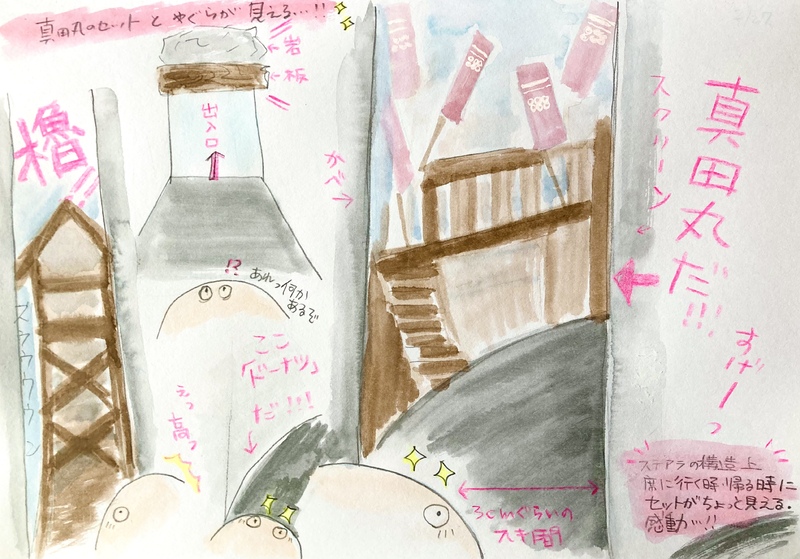 真田丸のセットとやぐらが見える…!!
←岩
←板
出入口
櫓!!
かべ→
スクリーン
真田丸だ!!!
すげーっ
!?
あれっ何か
あるぞ
ここ
「ドーナツ」
だ!!!
えっ
高っ
30cmぐらいの
スキ間
ステアラの構造上
席に行く時・帰る時に
セットがちょっと見える。
感動…!!